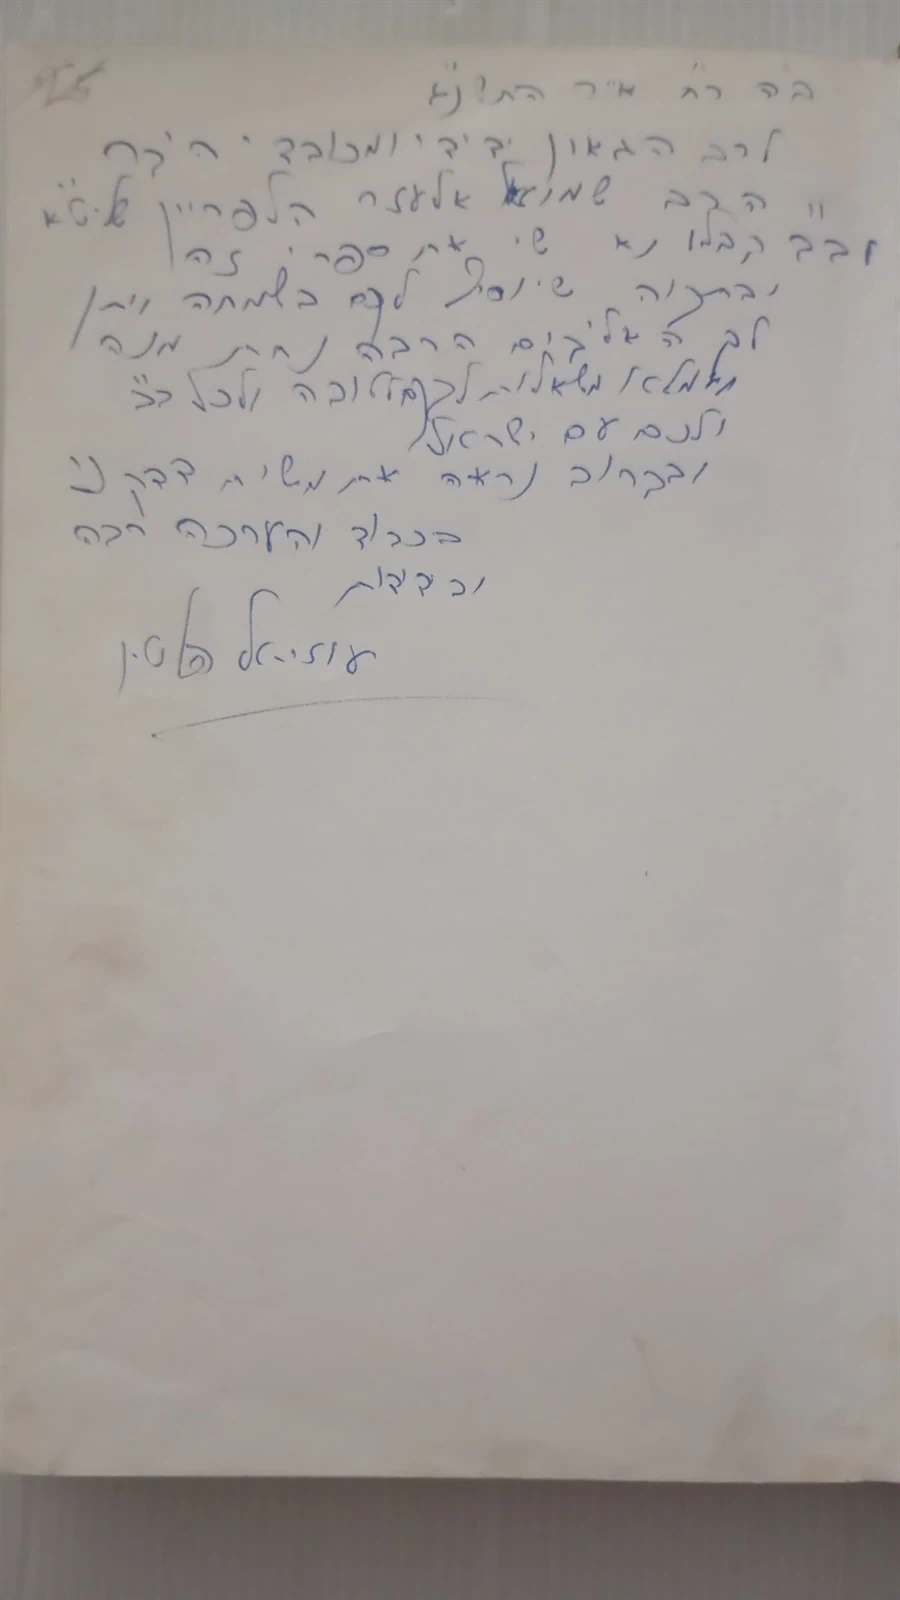 ב"ה ר"ח אייר התשנ"ג
לרב הגאון ידידי ומכובדי היקר
הרב שמואל אלעזר הלפרין שליט"א
וב"ב קבלו נא שי את ספרי זה
ובתקוה שיוסיף לכם בשמחה ויתן
לב הרבה נחת מנה
משאלות לטובה ולכל ב"ב
ולכם עם ישראל
ובקרוב נראה את משיח צדקנו
בכבוד והערכה רבה
ובידידות
עוזיאל